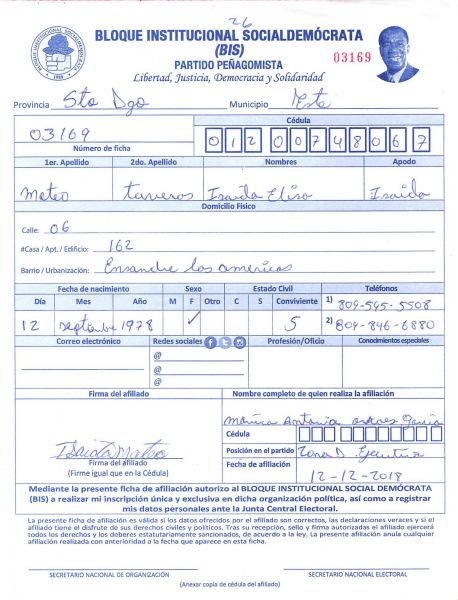 26
BLOQUE INSTITUCIONAL SOCIALDEMÓCRATA
(BIS)
PARTIDO PEÑAGOMISTA
Libertad, Justicia, Democracia y Solidaridad
03169
Provincia Sto Dgo Municipio Este
03169
Número de ficha
Cédula
1er. Apellido 2do. Apellido Nombres Apodo
Mateo Taveras Isaida Elisa Isaida
Domicilio Físico
Calle: 06
#Casa / Apt. / Edificio: 162
Barrio / Urbanización: Ensanche las americas
Fecha de nacimiento Sexo Estado Civil Teléfonos
Día Mes Año M F Otro C S Conviviente
12 septiembre 1978 ✓ S
1) 809-545-5508
2) 809-846-6880
Correo electrónico Redes sociales Profesión/Oficio Conocimientos especiales
@
@
@
Firma del afiliado Nombre completo de quien realiza la afiliación
Isaida Mateo
Firma del afiliado
(Firme igual que en la Cédula)
Antonia
Cédula
Posición en el partido Zona D. Ejecutiva
Fecha de afiliación
12-12-2018
Mediante la presente ficha de afiliación autorizo al BLOQUE INSTITUCIONAL SOCIAL DEMÓCRATA
(BIS) a realizar mi inscripción única y exclusiva en dicha organización política, así como a registrar
mis datos personales ante la Junta Central Electoral.
La presente ficha de afiliación es válida si los datos ofrecidos por el afiliado son correctos, las declaraciones veraces y si el
afiliado tiene el disfrute de sus derechos civiles y políticos. Tras su recepción, sello y firma autorizadas el afiliado ejercerá
todos los derechos y los deberes estatutariamente sancionados, de acuerdo a la ley. La presente afiliación anula cualquier
afiliación realizada con anterioridad a la fecha que aparece en esta ficha.
SECRETARIO NACIONAL DE ORGANIZACIÓN SECRETARIO NACIONAL ELECTORAL
(Anexar copia de cédula del afiliado)